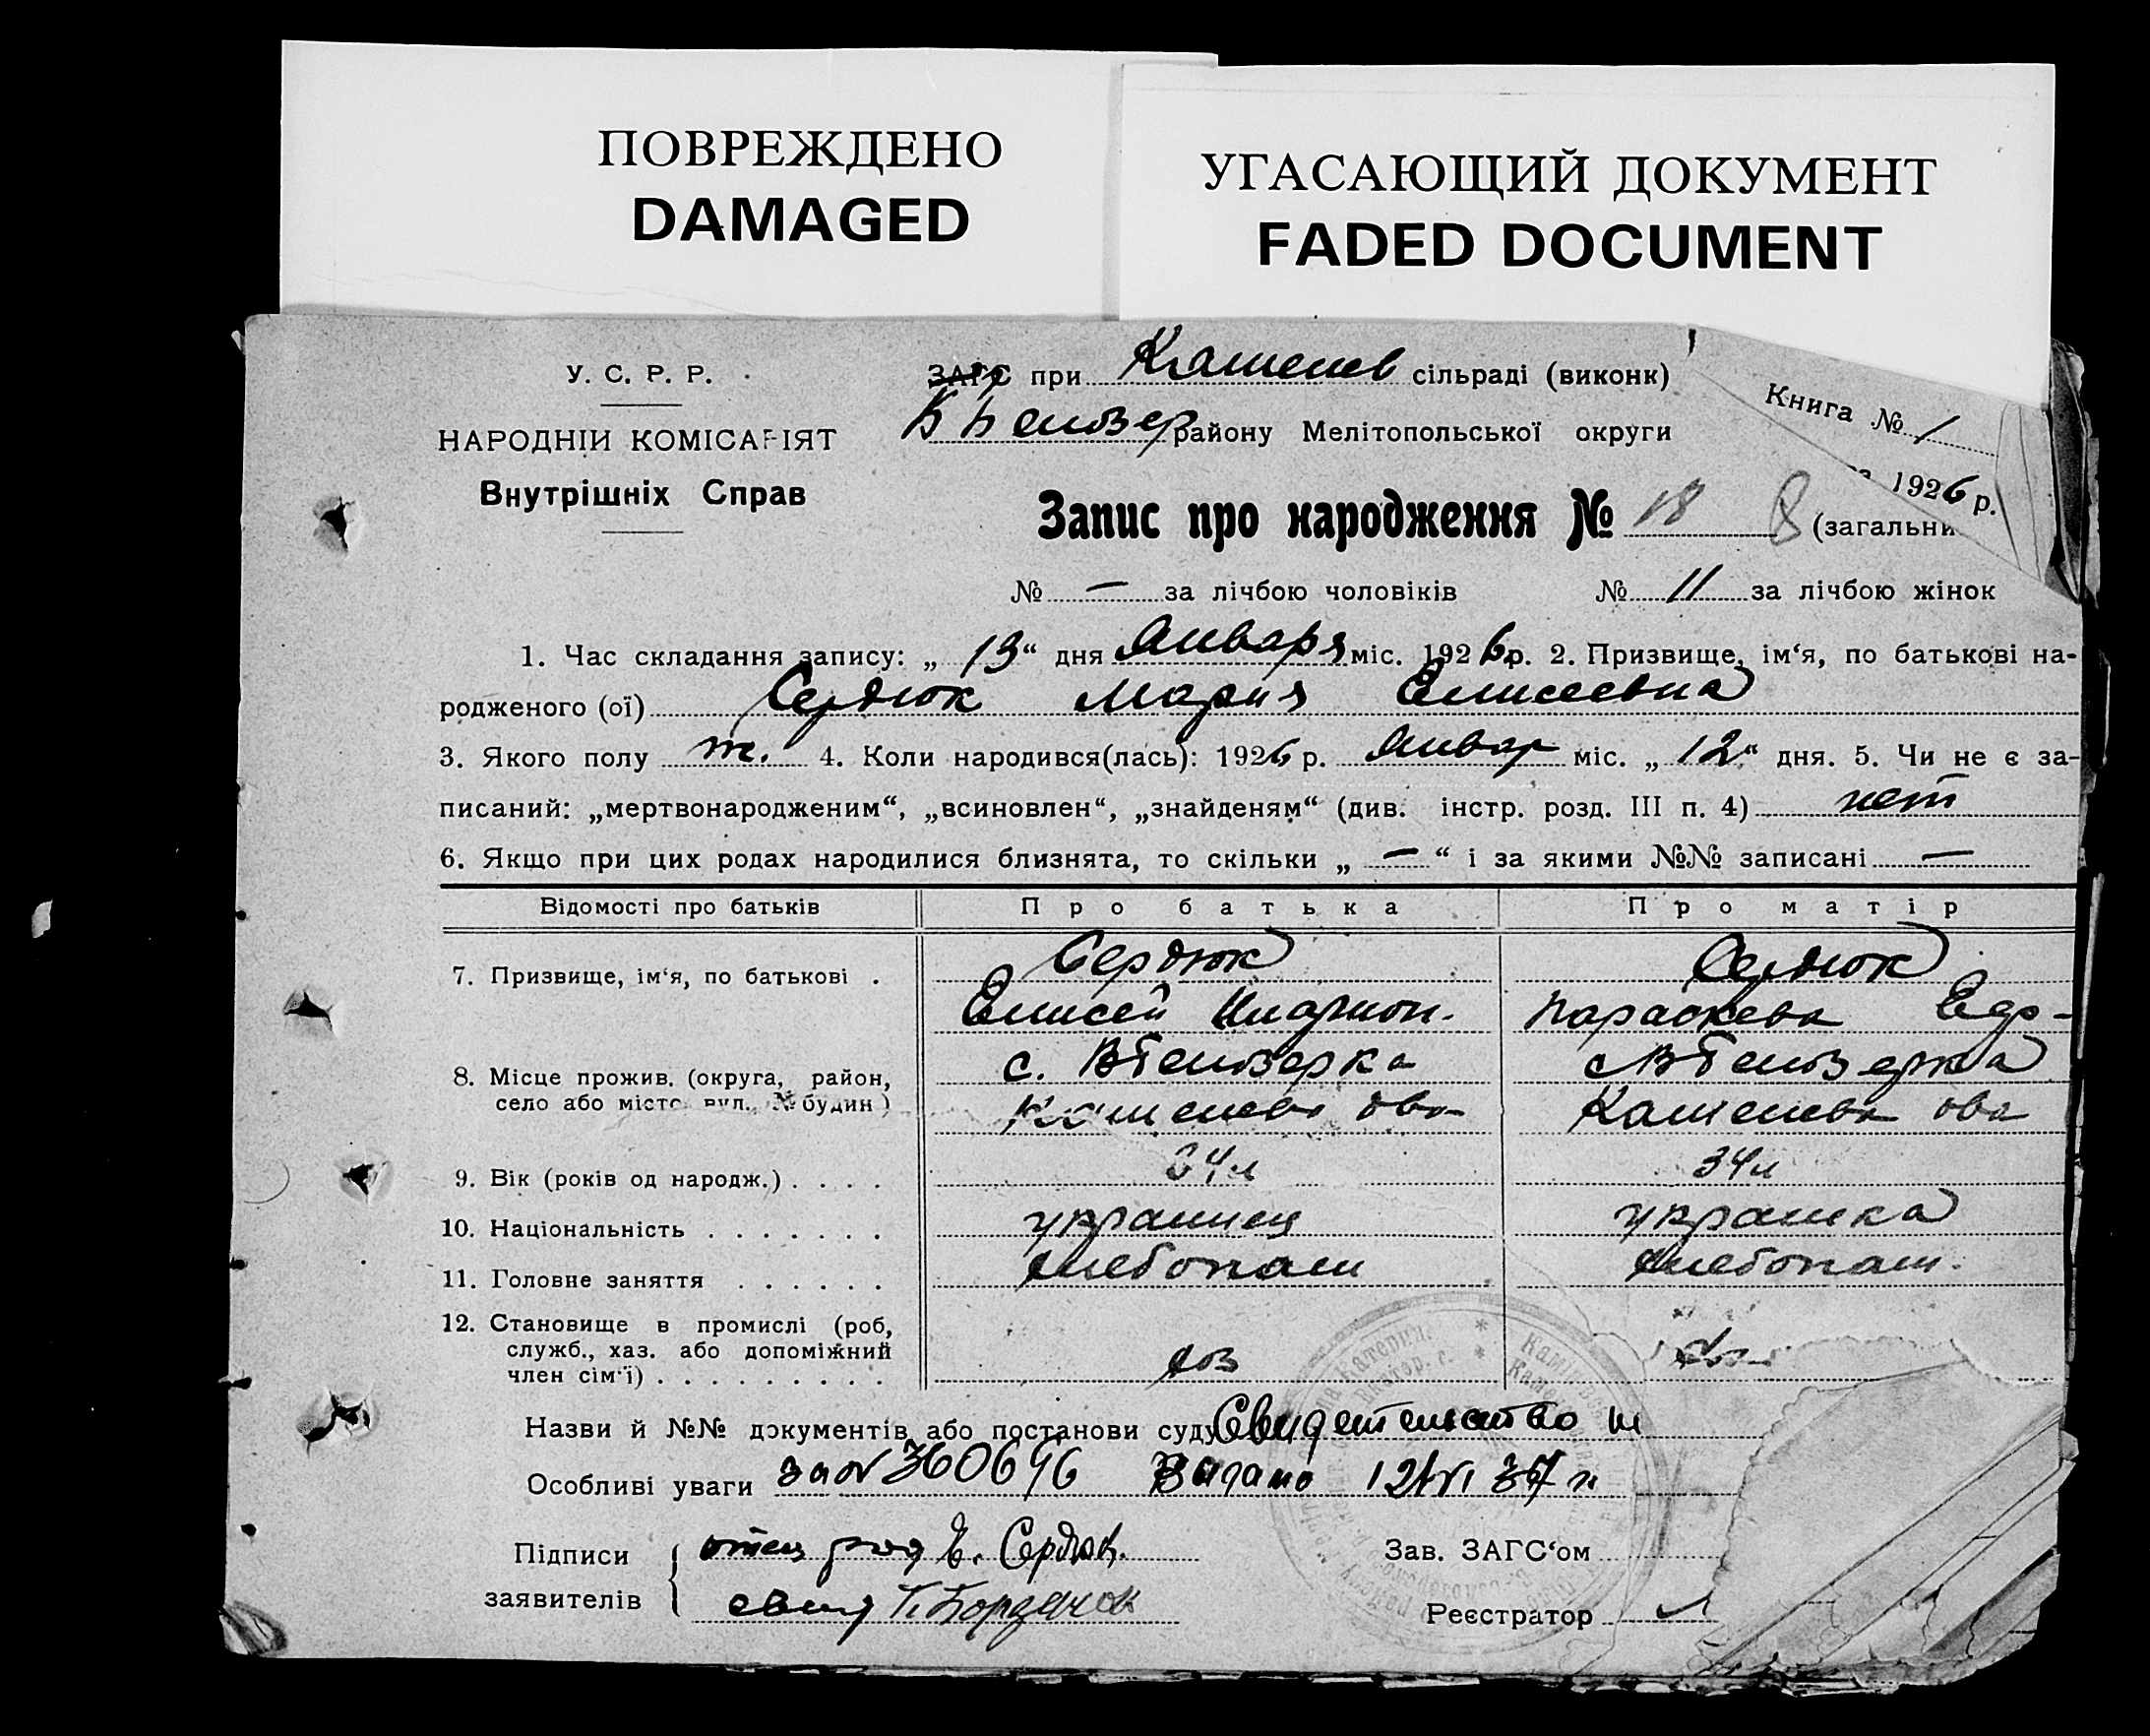 ПОВРЕЖДЕНО
DAMAGED
УГАСАЮЩИЙ ДОКУМЕНТ
FADED DOCUMENT
У. С. Р. Р.
НАРОДНІЙ КОМІСАРІЯТ
Внутрішніх Справ
ЗАГС при сільраді (виконк)
району Мелітопольської округи
Книга № 1
1926 р.
Запис про народження № 18 8 (загальни
№ — за лічбою чоловіків № 11 за лічбою жінок
1. Час складання запису: „ 13 “ дня Января міс. 1926 р. 2. Призвище, ім‘я, по батькові на-
родженого (ої) Сердюк Мария Елисеевна
3. Якого полу ж. 4. Коли народився(лась): 1926 р. Январ міс. „ 12 “ дня. 5. Чи не є за-
писаний: „мертвонародженим“, „всиновлен“, „знайденям“ (див. інстр. розд. III п. 4) нет
6. Якщо при цих родах народилися близнята, то скільки „ — “ і за якими №№ записані —
Відомості про батьків Про батька Про матір
7. Призвище, ім‘я, по батькові . Сердюк Сердюк
Елисей Иларион. Параскева
8. Місце прожив. (округа, район, с. Вбелозерка с Вбелозерка
село або місто вул., № будин)
9. Вік (років од народж.) . . . . 34 л 34 л
10. Національність . . . . . . . украинец украинка
11. Головне заняття . . . . . . хлебопаш хлебопаш.
12. Становище в промислі (роб,
служб., хаз. або допоміжний
член сім‘ї) . . . . . . . . . хоз
Назви й №№ документів або постанови суду Свидетельство
Особливі уваги 360696
Підписи отец Е. Сердюк. Зав. ЗАГС‘ом
заявителів свид Реєстратор